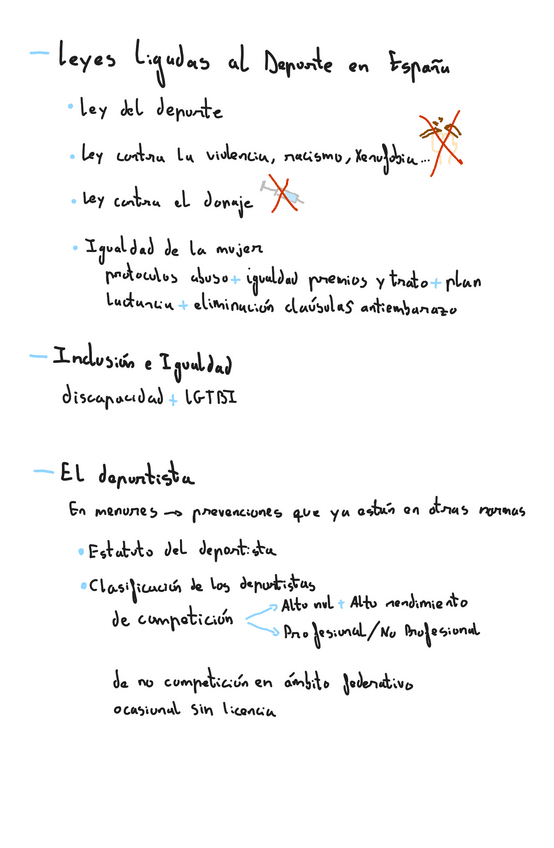 — Leyes ligadas al Deporte en España
• Ley del deporte
• Ley contra la violencia, racismo, Xenofobia...
• Ley contra el dopaje
• Igualdad de la mujer
protocolos abuso + igualdad premios y trato + plan
lactancia + eliminación claúsulas antiembarazo
— Inclusión e Igualdad
discapacidad + LGTBI
— El deportista
En menores → prevenciones que ya están en otras normas
• Estatuto del deportista
• Clasificación de los deportistas
de competición
Alto nvl + Alto rendimiento
Profesional/No Profesional
de no competición en ámbito federativo
ocasional sin licencia